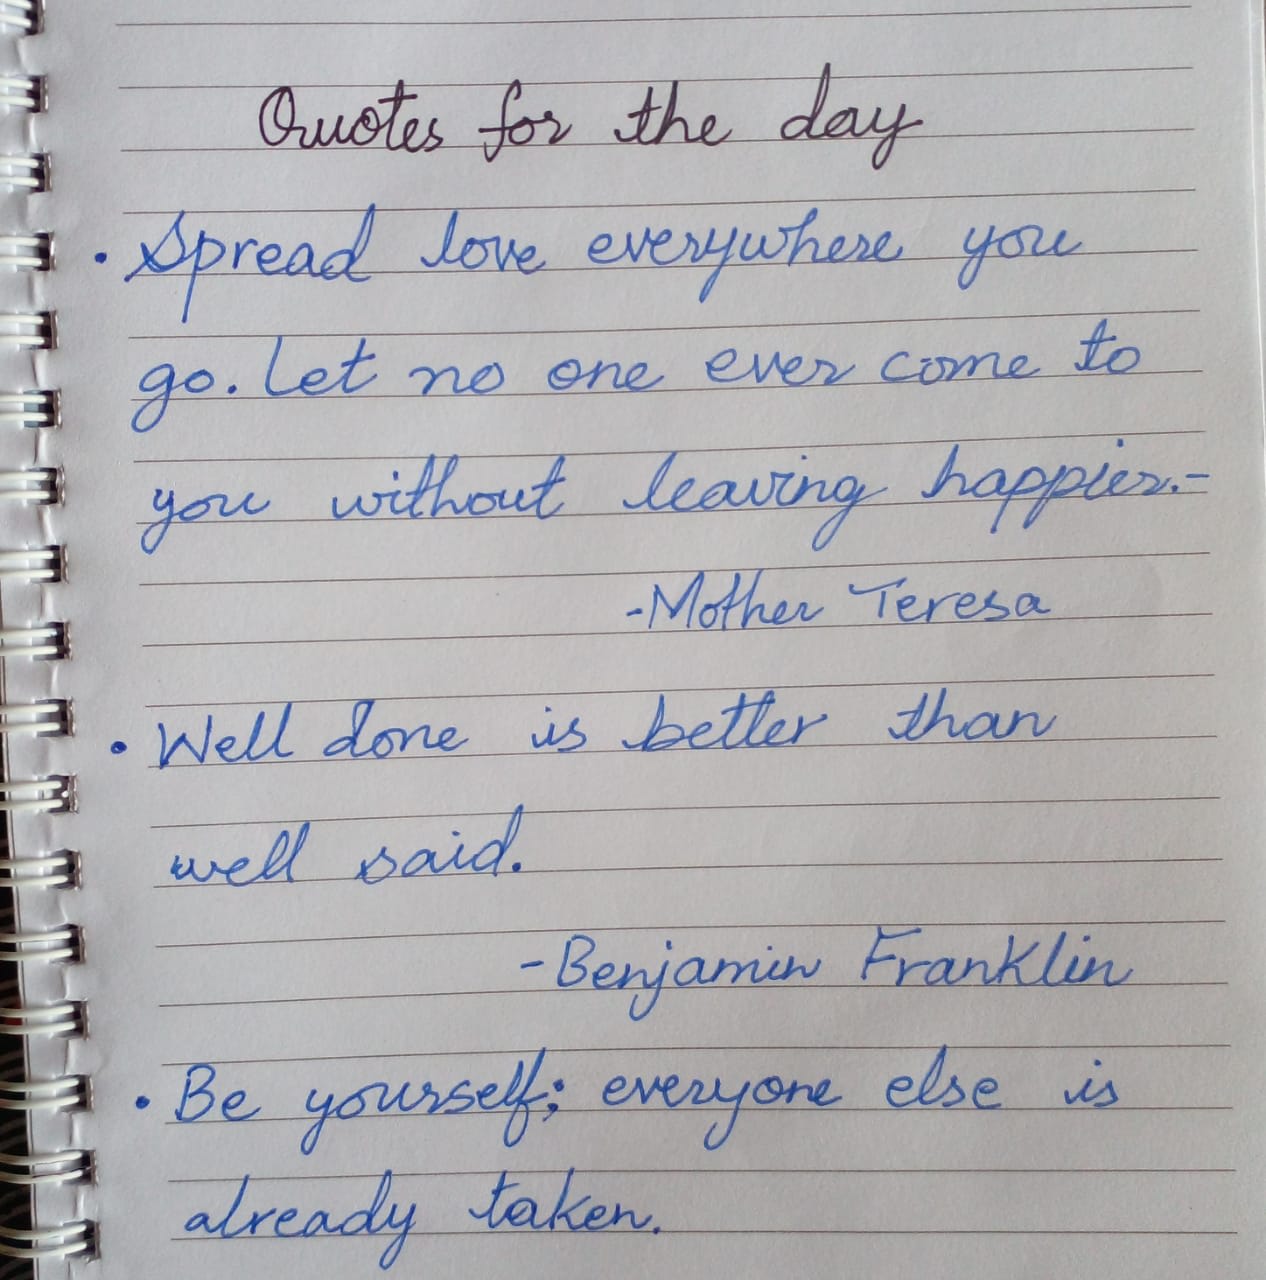 Quotes for the day
• Spread love everywhere you
go. Let no one ever come to
you without leaving happier.-
-Mother Teresa
• Well done is better than
well said.
-Benjamin Franklin
• Be yourself; everyone else is
already taken.